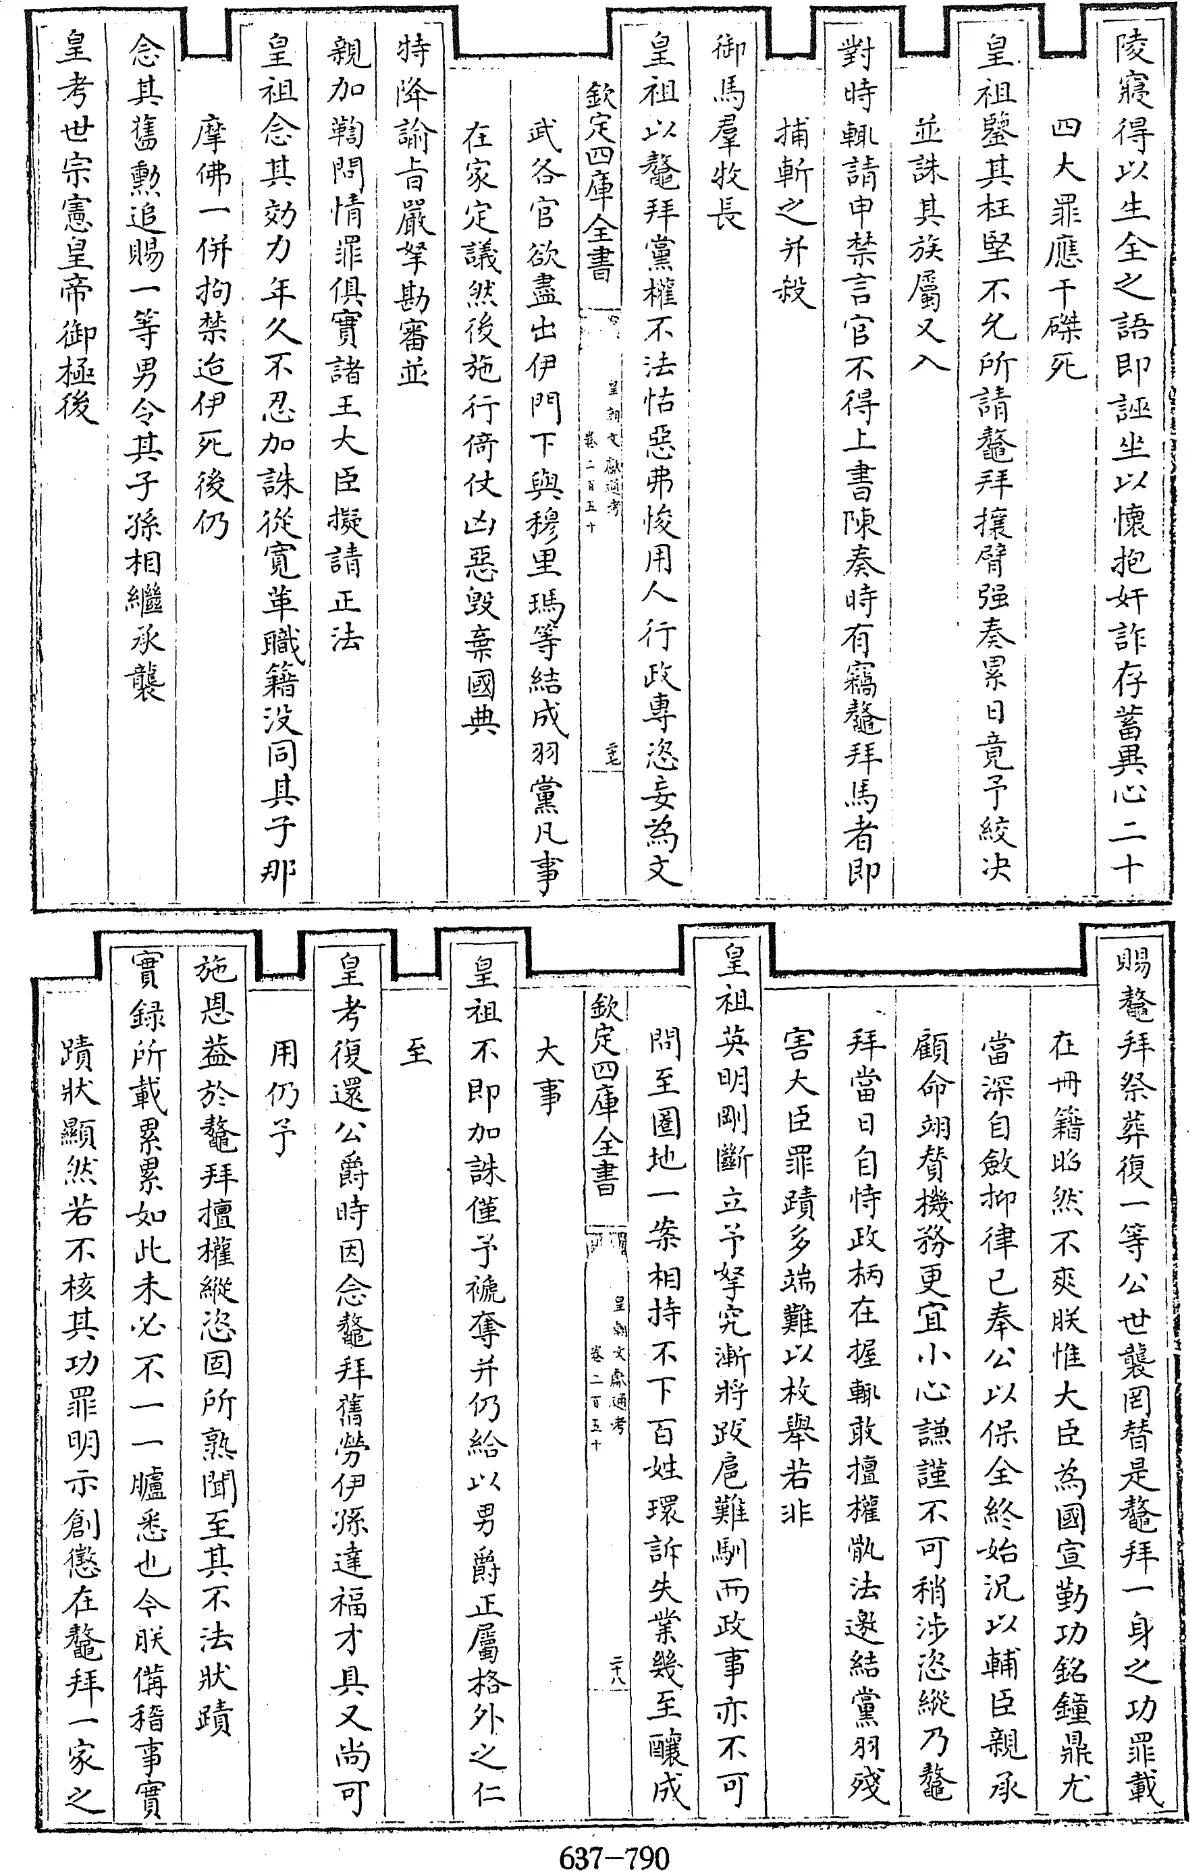 陵寢得以生全之語即誣坐以懷抱奸詐存蓄異心二十
四大罪應干磔死
皇祖鑒其枉堅不允所請鼇拜攘臂强奏累日竟予絞决
並誅其族屬又入
對時輒請申禁言官不得上書陳奏時有竊鼇拜馬者即
捕斬之并殺
御馬羣牧長
皇祖以鼇拜黨權不法怙惡弗悛用人行政專恣妄為文
欽定四庫全書
皇朝文獻通考
卷二百五十
二十七
武各官欲盡出伊門下與穆里瑪等結成羽黨凡事
在家定議然後施行倚仗凶惡毁棄國典
特降諭旨嚴拏勘審並
親加鞫問情罪俱實諸王大臣擬請正法
皇祖念其効力年久不忍加誅從寛革職籍没同其子那
摩佛一併拘禁迨伊死後仍
念其舊勲追賜一等男令其子孫相繼承襲
皇考世宗憲皇帝御極後
賜鼇拜祭葬復一等公世襲罔替是鼇拜一身之功罪載
在册籍昭然不爽朕惟大臣為國宣勤功銘鐘鼎尤
當深自斂抑律己奉公以保全終始況以輔臣親承
顧命翊賛機務更宜小心謙謹不可稍涉恣縱乃鼇
拜當日自恃政柄在握輒敢擅權骫法邀結黨羽殘
害大臣罪蹟多端難以枚舉若非
皇祖英明剛斷立予拏究漸將跋扈難馴而政事亦不可
問至圈地一案相持不下百姓環訴失業幾至釀成
欽定四庫全書
皇朝文獻通考
卷二百五十
二十八
大事
皇祖不即加誅僅予褫奪并仍給以男爵正屬格外之仁
至
皇考復還公爵時因念鼇拜舊勞伊孫達福才具又尚可
用仍予
施恩葢於鼇拜擅權縱恣固所熟聞至其不法狀蹟
實録所載累累如此未必不一一臚悉也今朕備稽事實
蹟狀顯然若不核其功罪明示創懲在鼇拜一家之
637-790